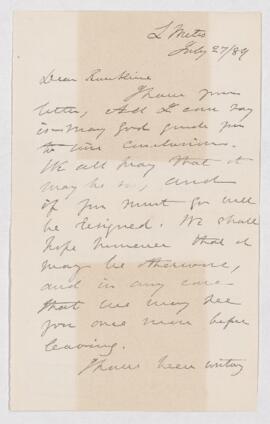 L Metis
July 27/89
Dear Rankine
I have your
letter, All I can say
is may God guide you
to wise conclusions.
We all pray that it
may be so, and
if you must go will
be resigned. We shall
hope however that it
may be otherwise,
and in any case
that we may see
you once more before
leaving.
I have been writing